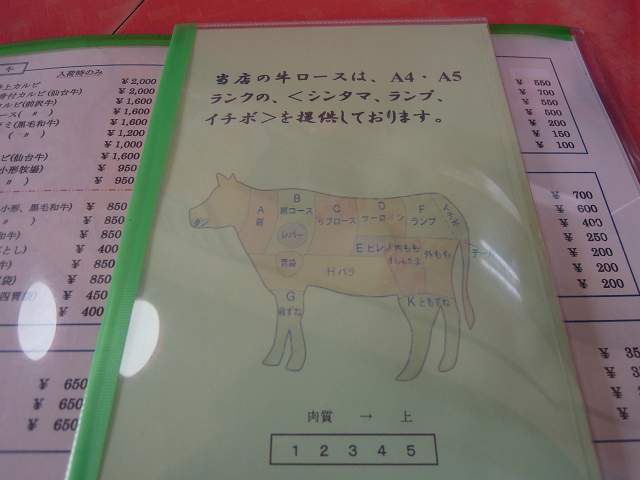 当店の牛ロースは、A4・A5
ランクの、＜シンタマ、ランプ、
イチボ＞を提供しております。
タン
A
肩
B
肩ロース
レバー
C
リブロース
D
サーロイン
F
ランプ
イチボ
テール
E ヒレ
内もも
しんたま
外もも
胃袋
H バラ
G
前ずね
K ともずね
肉質 → 上
1 2 3 4 5
牛
入荷時のみ
上カルビ ¥2,000
骨付カルビ(仙台牛) ¥2,000
カルビ(前沢牛) ¥1,600
ース( 〃 ) ¥1,600
ミ(黒毛和牛) ¥1,600
( 〃 ) ¥1,200
¥1,000
ビ(仙台牛) ¥1,600
小形牧場) ¥950
〃 ) ¥950
小形、黒毛和牛) ¥850
〃 ) ¥850
和牛) ¥850
とし) ¥400
牛) ¥850
袋) ¥850
四胃袋) ¥450
¥400
¥650
¥650
¥650
¥550
¥700
¥550
¥500
¥200
¥150
¥100
¥700
¥600
¥400
¥250
¥200
¥200
¥200
¥35
¥3
¥3
¥